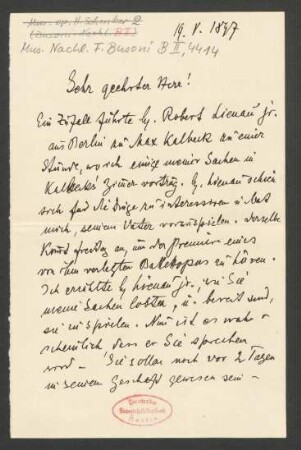 Mus. ep. H. Schenker 2
(Busoni-Nachl. B II)
Mus. Nachl. F. Busoni B II, 4414
19. V. 1897
Sehr geehrter Herr!
Ein Zufall führte H. Robert Lienau jr.
aus Berlin zu Max Kalbeck zu einer
Stunde, wo ich einige meiner Sachen in
Kalbecks Zimmer vortrug. H. Lienau schien
sich für die Dinge zu interessiren u. bat
mich, seinem Vater vorzuspielen. Derselbe
kommt freitag an, um der Première eines
von ihm verlegten Balletopus zu hören.
Ich erzählte H. Lienau jr., wie Sie
meine Sachen lobten, u. bereit sind,
sie zu spielen. Nun ist es wahr-
scheinlich dass er Sie sprechen
wird – Sie sollen noch vor 2 Tagen
in seinem Geschäft gewesen sein –
Deutsche
Staatsbibliothek
Berlin